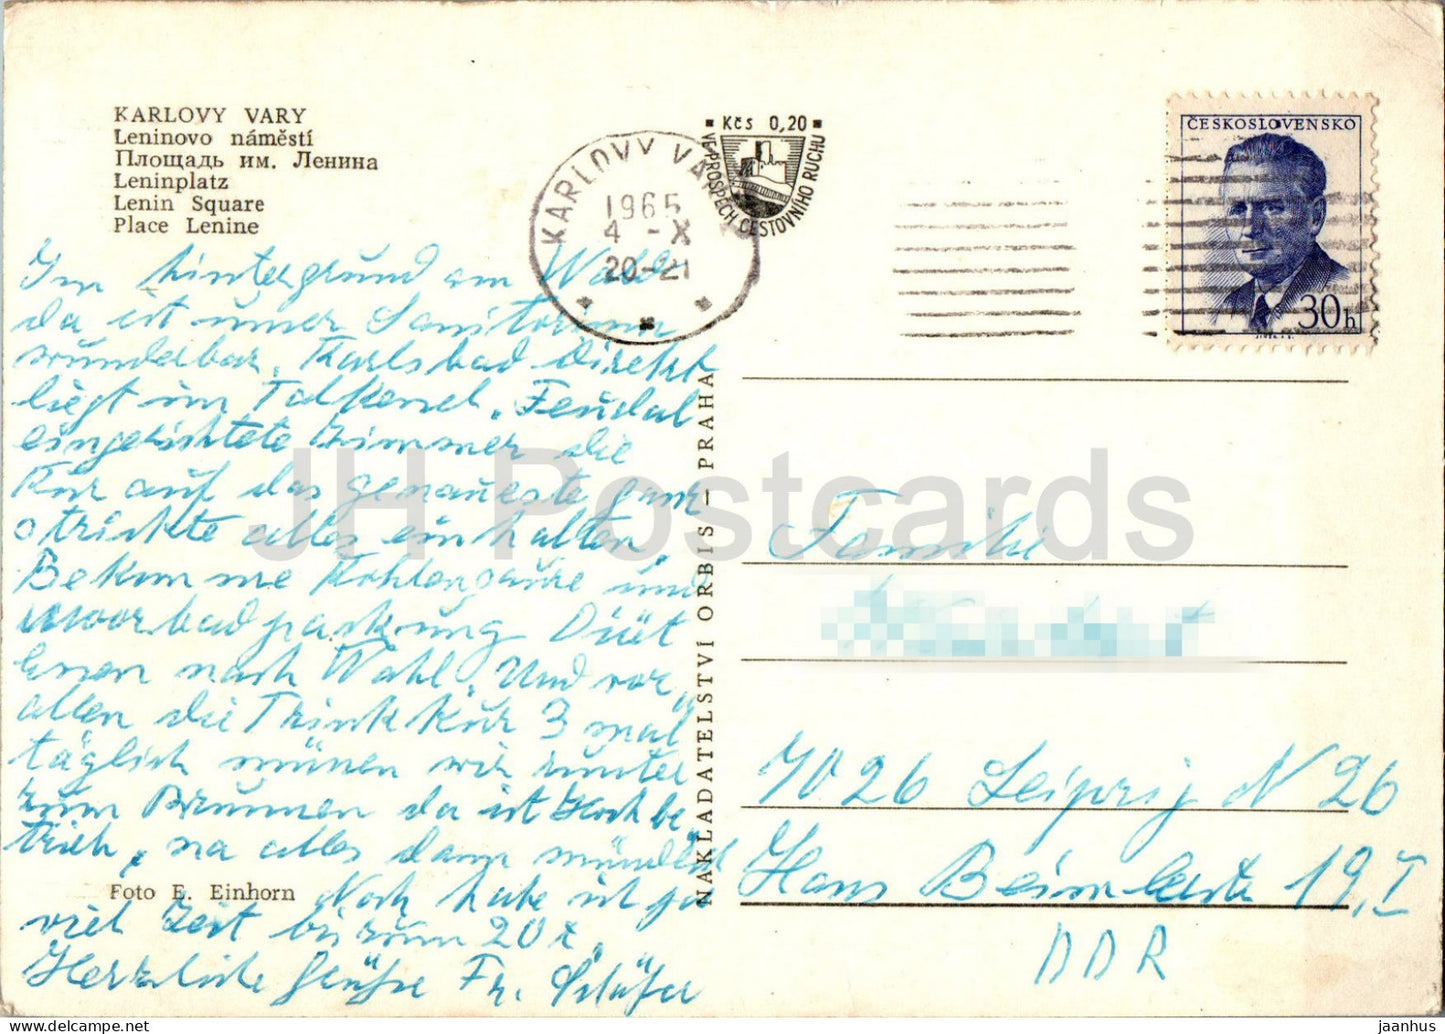 KARLOVY VARY
Leninovo náměstí
Площадь им. Ленина
Leninplatz
Lenin Square
Place Lenine
KARLOVY VARY
1965
4 - X
20-21
Kčs 0,20
VE PROSPĚCH CESTOVNÍHO RUCHU
ČESKOSLOVENSKO
30h
Im Hintergrund am Wald
da ist unser Sanitorium
wunderbar. Karlsbad direkt
liegt im Talkenel. Feudal
eingerichtete Zimmer die
Kur auf das genaueste ganz
strickte alles einhalten.
Bekomme Kohlengaure und
Moorbadpackung Diät
Essen nach Wahl. Und vor
allen die Trinkkur 3 mal
täglich münen wir runter
zum Brunnen da ist Hochbe
trieb, na alles dann mündlich
Noch habe ich ja
viel Zeit bis zum 20 X.
Herzliche Grüße Fr. Schäfer
Foto E. Einhorn
NAKLADATELSTVÍ ORBIS — PRAHA
Familie
7026 Leipzig N 26
Hans Beimlerstr 19, I
DDR
JH Postcards
delcampe.net
jaanhuus